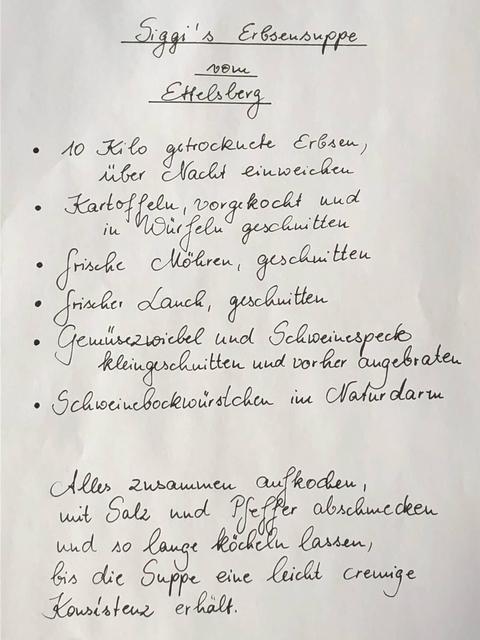 Siggi's Erbsensuppe
vom
Ettelsberg
• 10 Kilo getrocknete Erbsen,
über Nacht einweichen
• Kartoffeln, vorgekocht und
in Würfeln geschnitten
• frische Möhren, geschnitten
• frischer Lauch, geschnitten
• Gemüsezwiebel und Schweinespeck
kleingeschnitten und vorher angebraten
• Schweinebockwürstchen im Naturdarm
Alles zusammen aufkochen,
mit Salz und Pfeffer abschmecken
und so lange köcheln lassen,
bis die Suppe eine leicht cremige
Konsistenz erhält.